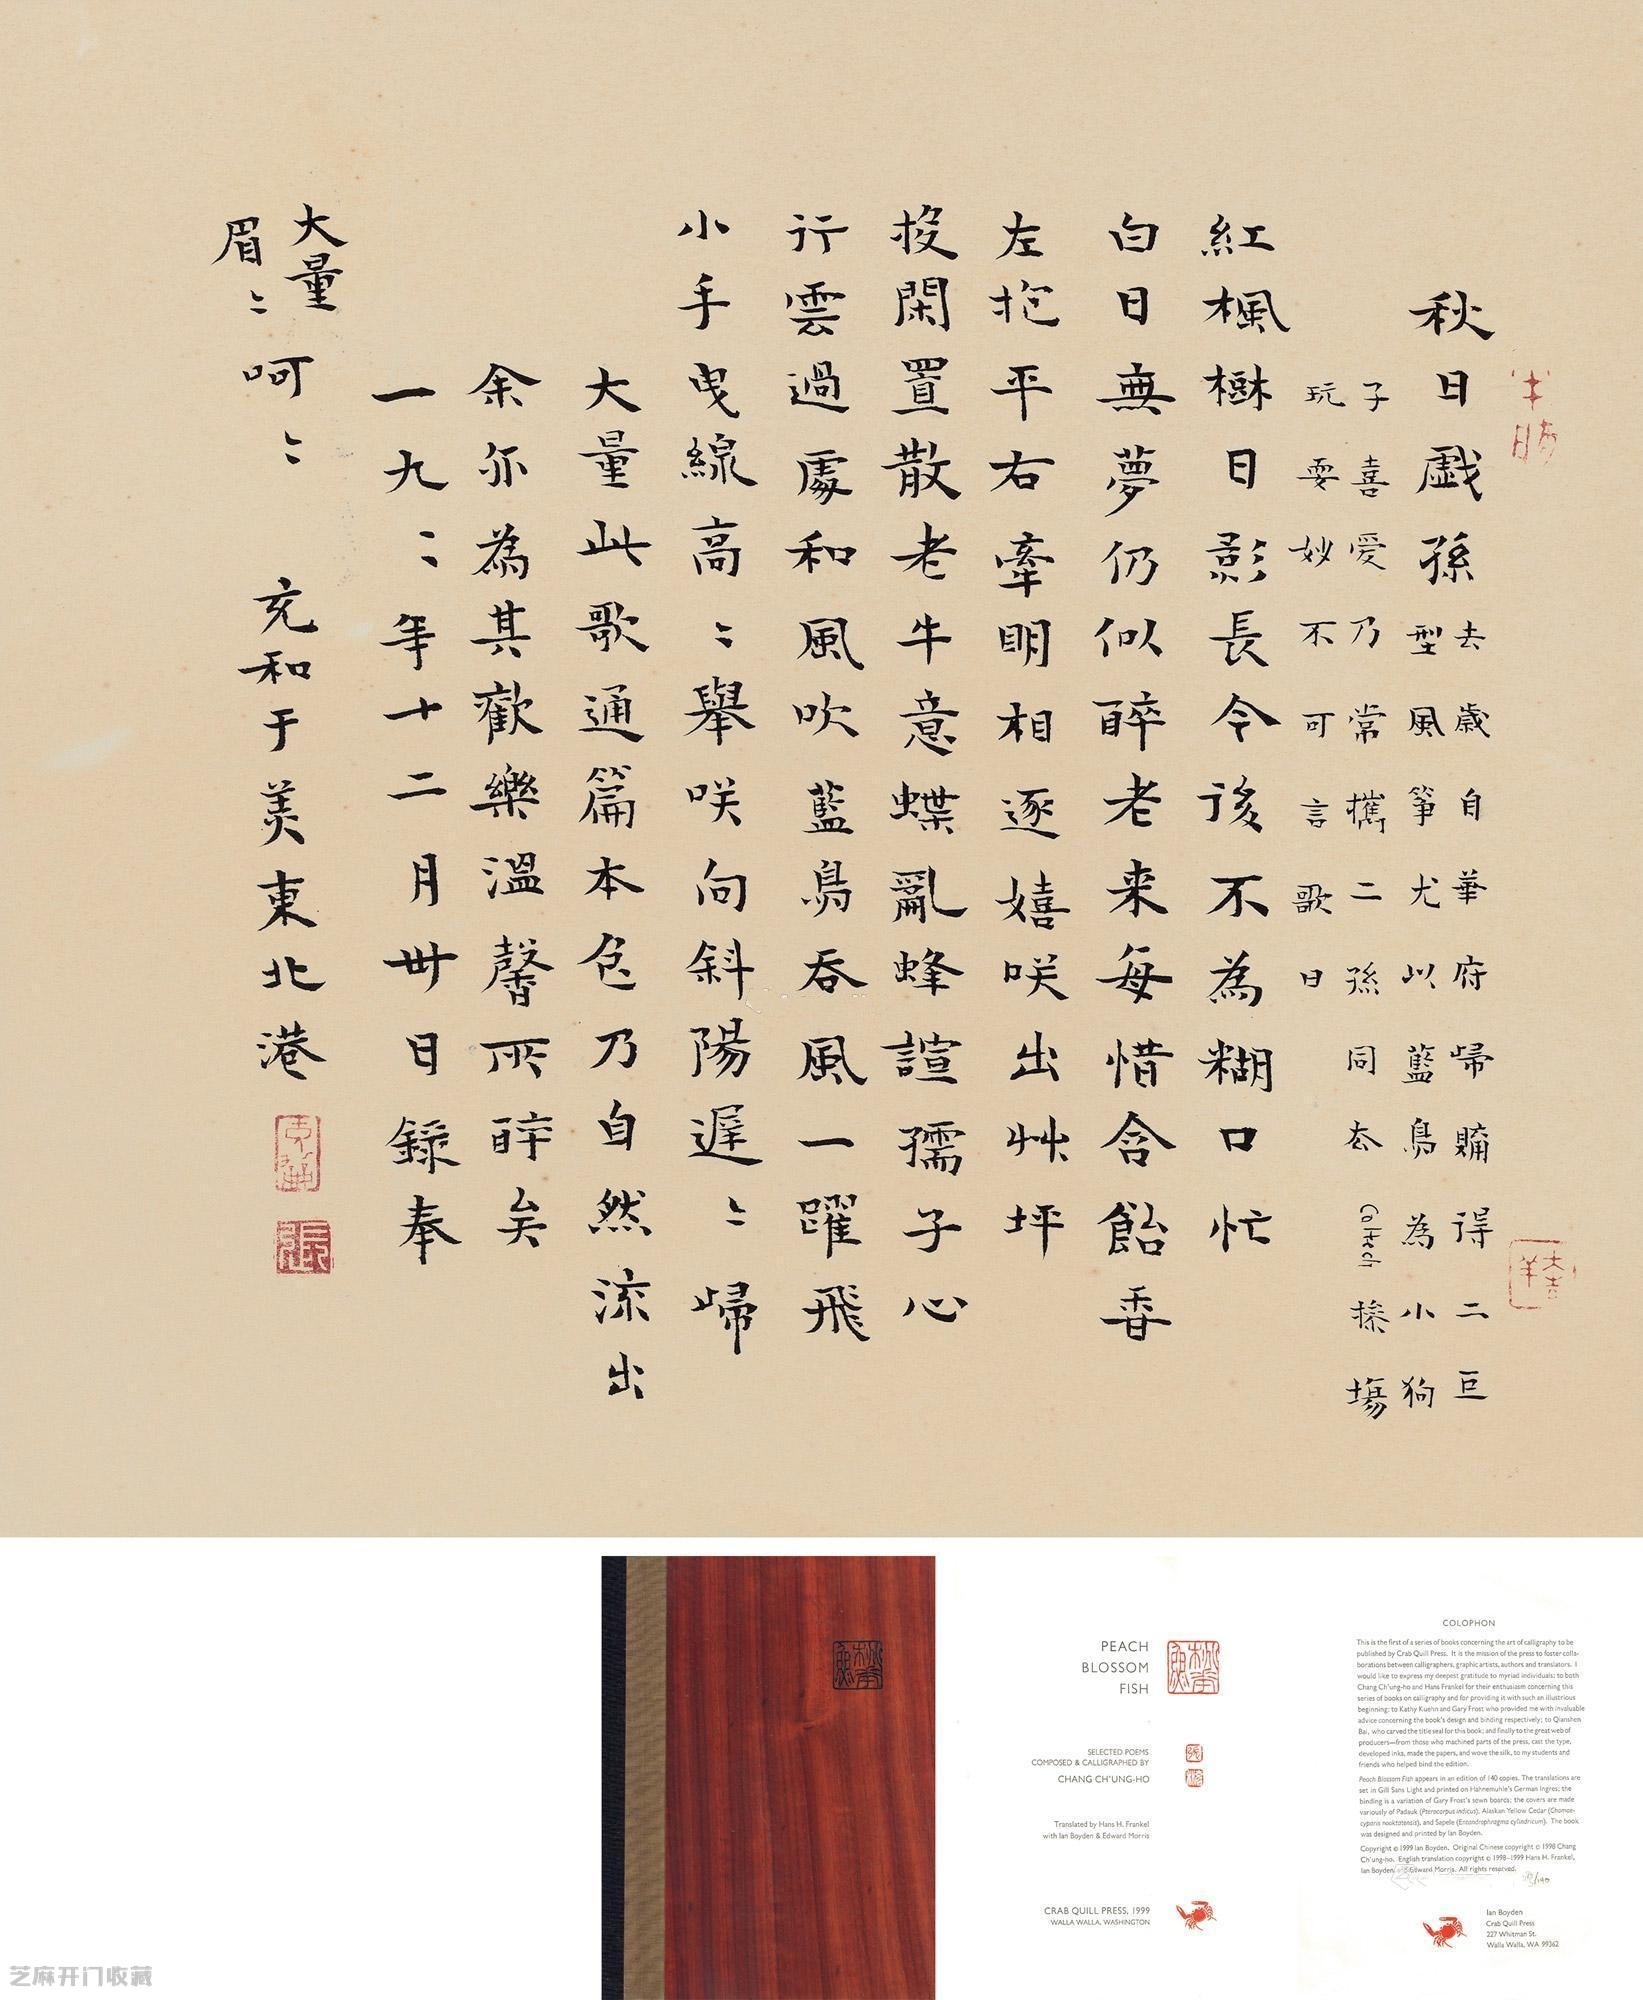 秋日戯孫
去歲自華府歸購得二巨
型風箏尤以藍鳥為小狗
子喜愛乃常攜二孫同去操場
玩耍妙不可言歌曰
紅楓樹日影長今後不為糊口忙
白日無夢仍似醉老来每惜含飴香
左抱平右牽明相逐嬉咲出艸坪
投閑置散老牛意蝶亂蜂諠孺子心
行雲過處和風吹藍鳥吞風一躍飛
小手曳線高〻舉咲向斜陽遲〻歸
大量此歌通篇本色乃自然流出
余亦為其歡樂溫馨所醉矣
一九〻年十二月卅日錄奉
大量
眉〻呵〻 充和于美東北港
張
PEACH
BLOSSOM
FISH
SELECTED POEMS
COMPOSED & CALLIGRAPHED BY
CHANG CH'UNG-HO
Translated by Hans H. Frankel
with Ian Boyden & Edward Morris
CRAB QUILL PRESS, 1999
WALLA WALLA, WASHINGTON
COLOPHON
This is the first of a series of books concerning the art of calligraphy to be
published by Crab Quill Press. It is the mission of the press to foster colla-
borations between calligraphers, graphic artists, authors and translators. I
would like to express my deepest gratitude to myriad individuals: to both
Chang Ch'ung-ho and Hans Frankel for their enthusiasm concerning this
series of books on calligraphy and for providing it with such an illustrious
beginning; to Kathy Kuehn and Gary Frost who provided me with invaluable
advice concerning the book's design and binding respectively; to Qianshen
Bai, who carved the title seal for this book; and finally to the great web of
producers—from those who machined parts of the press, cast the type,
developed inks, made the papers, and wove the silk, to my students and
friends who helped bind the edition.
Peach Blossom Fish appears in an edition of 140 copies. The translations are
set in Gill Sans Light and printed on Hahnemuhle's German Ingres; the
binding is a variation of Gary Frost's sewn boards; the covers are made
variously of Padauk (Pterocarpus indicus), Alaskan Yellow Cedar (Chamae-
cyparis nooktatensis), and Sapele (Entandrophragma cylindricum). The book
was designed and printed by Ian Boyden.
Copyright © 1999 Ian Boyden. Original Chinese copyright © 1998 Chang
Ch'ung-ho. English translation copyright © 1998–1999 Hans H. Frankel,
Ian Boyden, Edward Morris. All rights reserved.
/140
Ian Boyden
Crab Quill Press
227 Whitman St.
Walla Walla, WA 99362
芝麻开门收藏